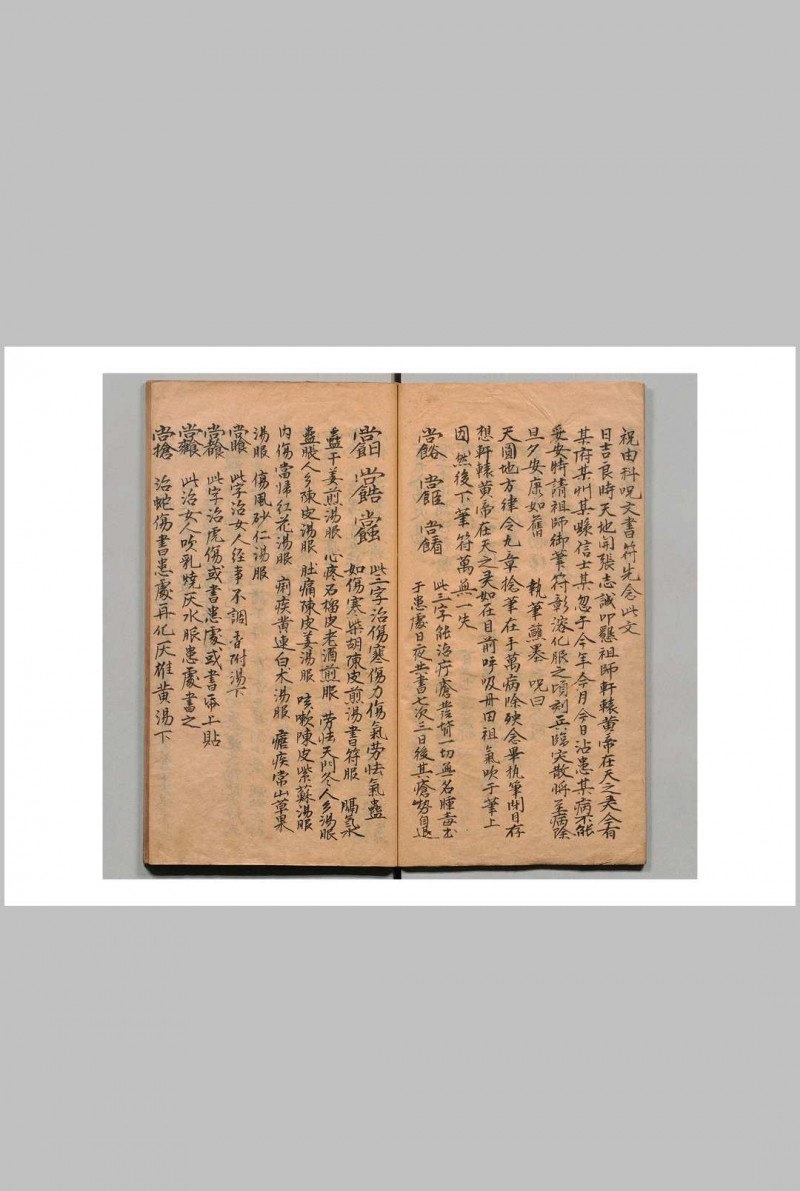 祝由科呪文書符先念此文
日吉良時天地開張志誠叩懇祖師軒轅黃帝在天之灵今有
某府某州某縣信士某忽于今年今月今日沾患某病不能
妥安特請祖師御筆符彰溶化服之頃刻立臨灾散將至病除
旦夕安康如舊 執筆蘸墨 呪曰
天圓地方律令九章捻筆在手萬病除殃念畢执筆閉目存
想軒轅黃帝在天之灵如在目前呼吸丹田祖氣吹于筆上
因然後下筆符萬無一失
此三字能治疔瘡發背一切無名腫毒出
于患處日夜共書七次三日後其瘡勢自退
此三字治傷寒傷力傷氣劳怯氣蠱
如傷寒柴胡陳皮煎湯書符服 膈氣
蠱干姜煎湯服 心疼石榴皮老酒煎服 劳怯天門冬人乡湯服
蠱脹人乡陳皮湯服 肚痛陳皮姜湯服 咳嗽陳皮紫蘇湯服
内傷當歸红花湯服 痢疾黄連白术湯服 瘧疾常山草果
湯服 傷風砂仁湯服
此字治女人经事不調香附湯下
此字治虎傷或書患處或書布上貼
此治女人吹乳燒灰水服患處書之
治蛇傷書患處再化灰雄黄湯下